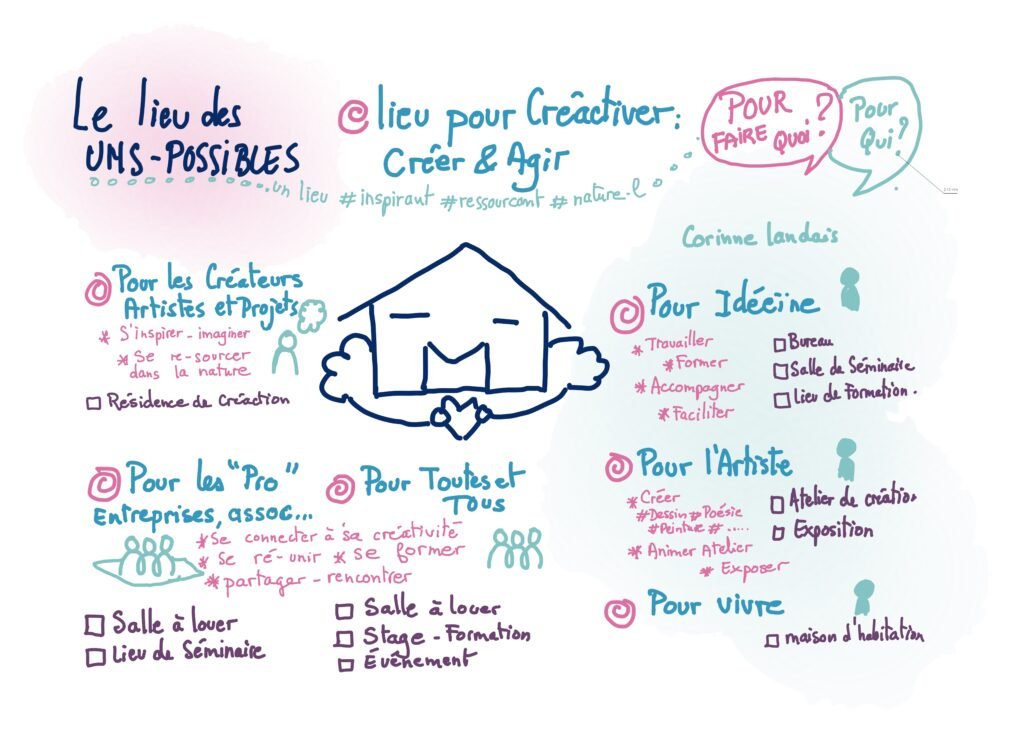 Le lieu des
UNS-POSSIBLES
lieu pour Créactiver:
Créer & Agir
un lieu #inspirant #ressourcant #nature.l
POUR
FAIRE QUOI?
Pour
Qui?
Corinne Landais
Pour les Créateurs
Artistes et Projets
* S'inspirer - imaginer
* Se re-sourcer
dans la nature
Résidence de Créaction
Pour Idéeïne
* Travailler
* Former
* Accompagner
* Faciliter
Bureau
Salle de Séminaire
Lieu de Formation.
Pour les "Pro"
Entreprises, assoc...
Pour Toutes et
Tous
* Se connecter à sa créativité
* Se ré-unir * se former
* partager - rencontrer
Salle à louer
Lieu de Séminaire
Salle à louer
Stage - Formation
Évênement
Pour l'Artiste
* Créer
#Dessin #Poésie
#Peinture #.....
* Animer Atelier
* Exposer
Atelier de création
Exposition
Pour vivre
maison d'habitation